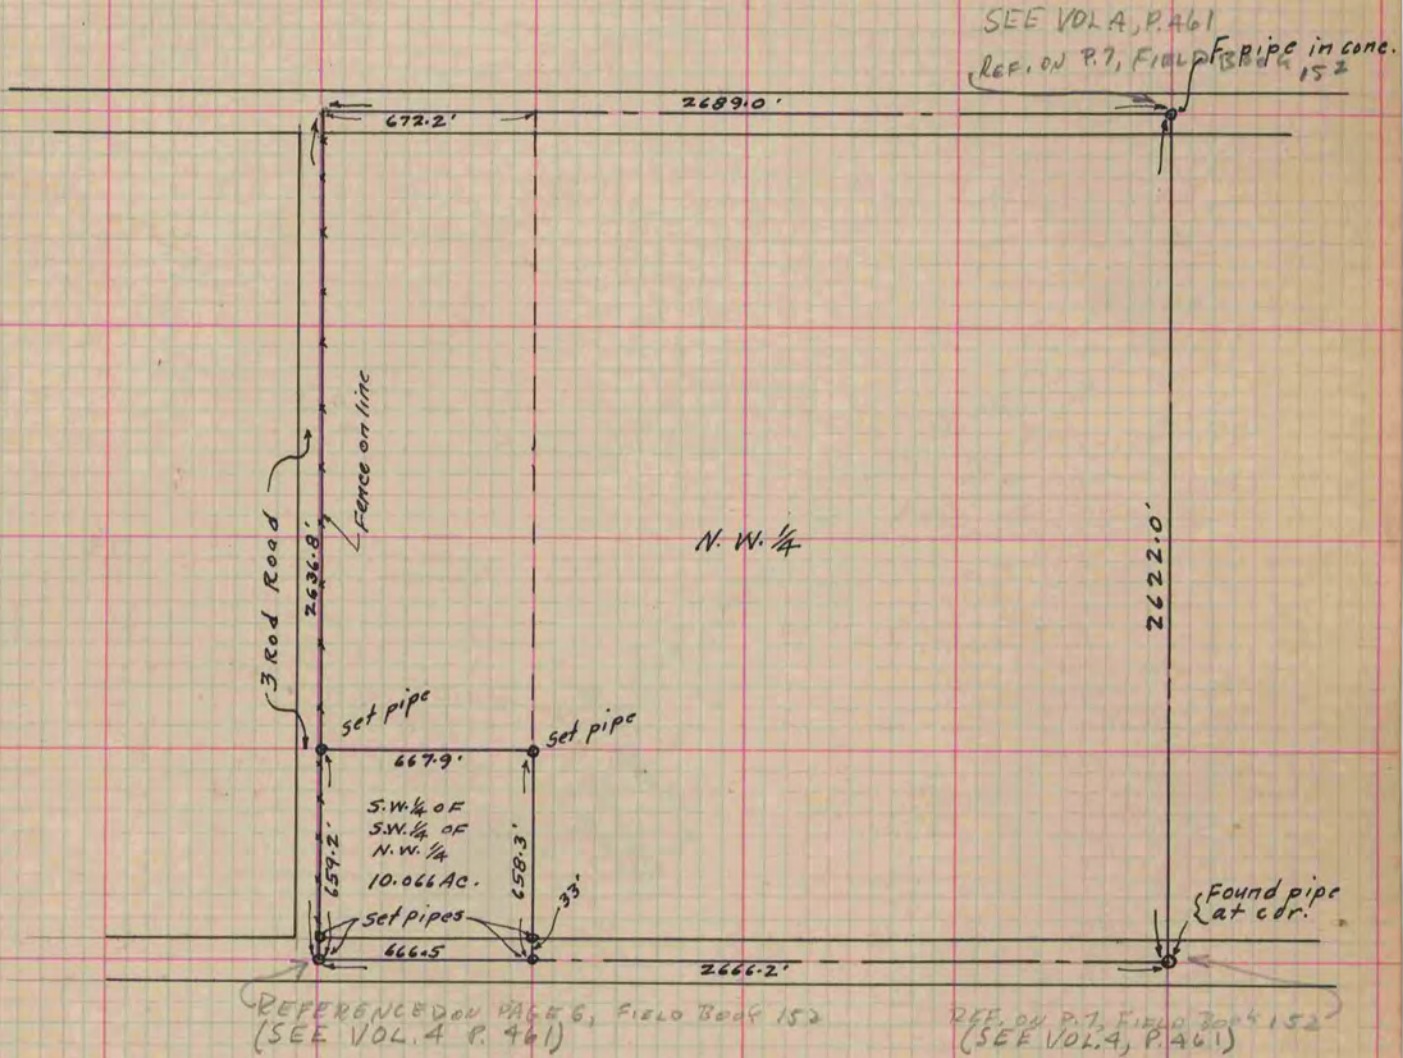 SEE VOL.A, P.461
REF. ON P.7, FIELD BOOK 152
F. pipe in conc.
2689.0'
672.2'
Fence on line
3 Rod Road
2636.8'
N. W. 1/4
2622.0'
set pipe
set pipe
667.9'
S.W. 1/4 OF
S.W. 1/4 OF
N.W. 1/4
10.066 Ac.
659.2'
658.3'
33'
set pipes
666.5
2666.2'
Found pipe
at cor.
REFERENCED ON PAGE 6, FIELD BOOK 152
(SEE VOL.4 P. 461)
REF. ON P.7, FIELD BOOK 152
(SEE VOL.4, P.461)